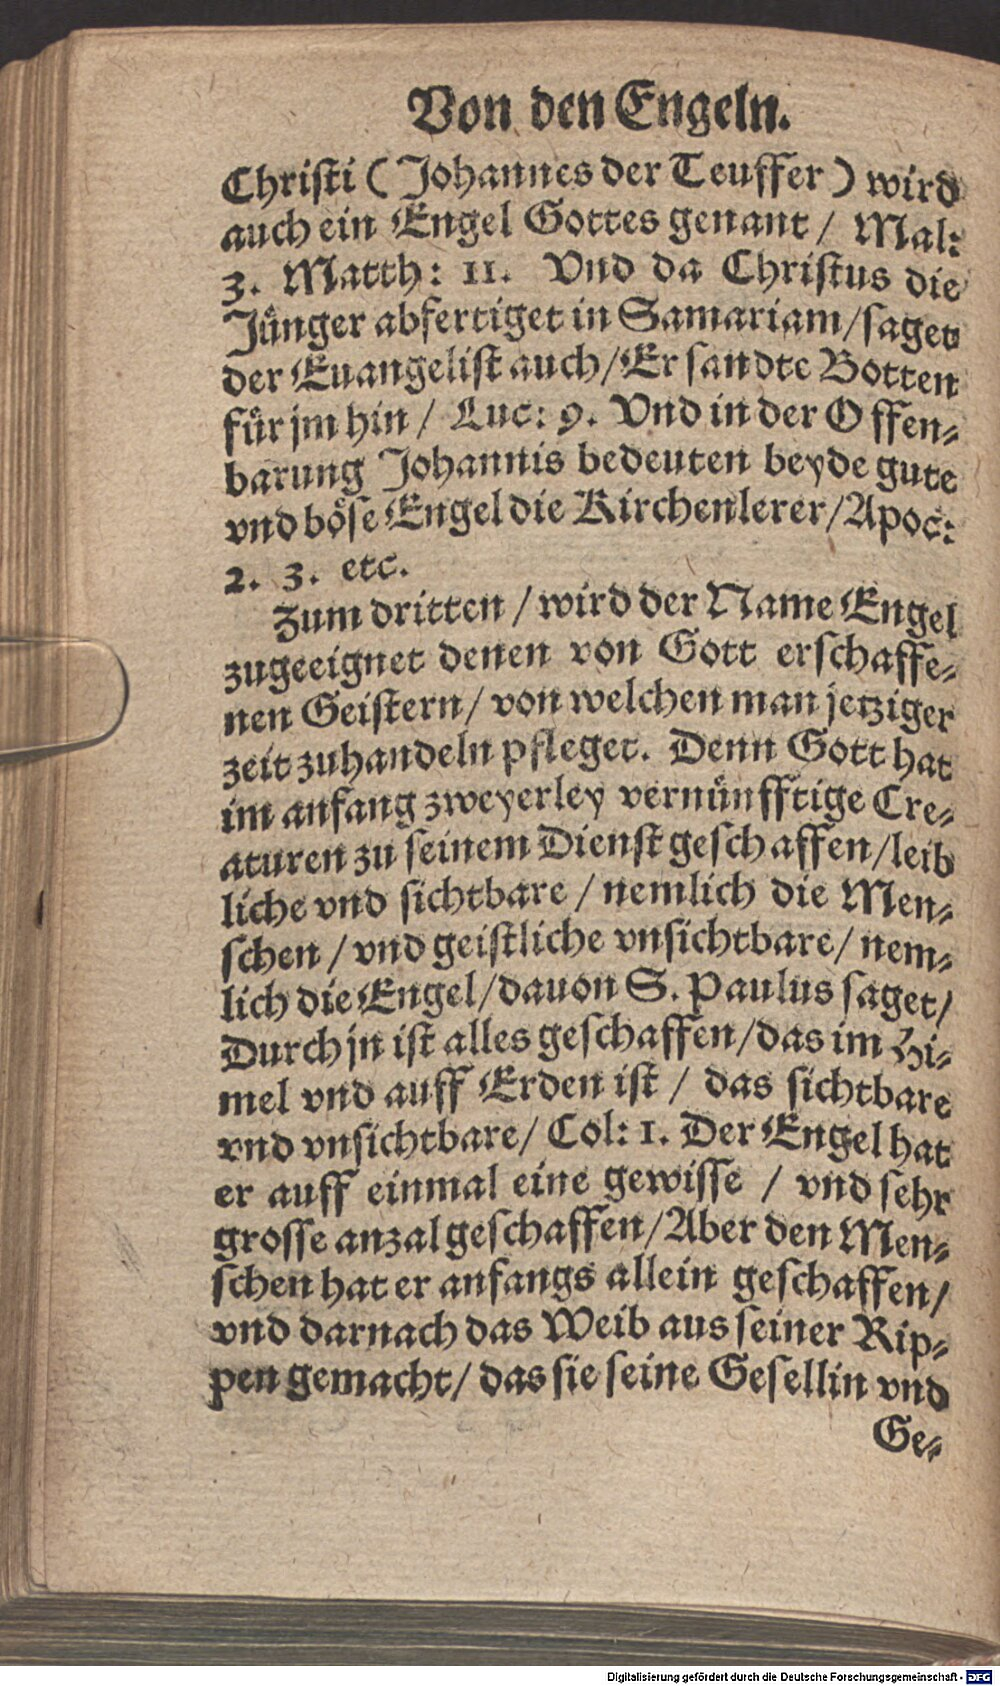 Von den Engeln.
Chriſti ( Johannes der Teuffer ) wird
auch ein Engel Gottes genant / Mal:
3. Matth: 11. Vnd da Chriſtus die
Jünger abfertiget in Samariam/ſaget
der Euangeliſt auch/Er ſandte Botten
für jm hin / Luc: 9. Vnd in der Offen⸗
barung Johannis bedeuten beyde gute
vnd böſe Engel die Kirchenlerer/Apoc:
2. 3. etc.
Zum dritten / wird der Name Engel
zugeeignet denen von Gott erſchaffe⸗
nen Geiſtern/ von welchen man jetziger
zeit zuhandeln pfleget. Denn Gott hat
im anfang zweyerley vernünfftige Cre⸗
aturen zu ſeinem Dienſt geſchaffen/leib
liche vnd ſichtbare / nemlich die Men⸗
ſchen / vnd geiſtliche vnſichtbare/ nem⸗
lich die Engel/dauon S. Paulus ſaget/
Durch jn iſt alles geſchaffen/das im Hi⸗
mel vnd auff Erden iſt / das ſichtbare
vnd vnſichtbare/ Col: 1. Der Engel hat
er auff einmal eine gewiſſe / vnd ſehr
groſſe anzal geſchaffen/Aber den Men⸗
ſchen hat er anfangs allein geſchaffen/
vnd darnach das Weib aus ſeiner Rip⸗
pen gemacht/ das ſie ſeine Geſellin vnd
Ge⸗
Digitalisierung gefördert durch die Deutsche Forschungsgemeinschaft - DFG